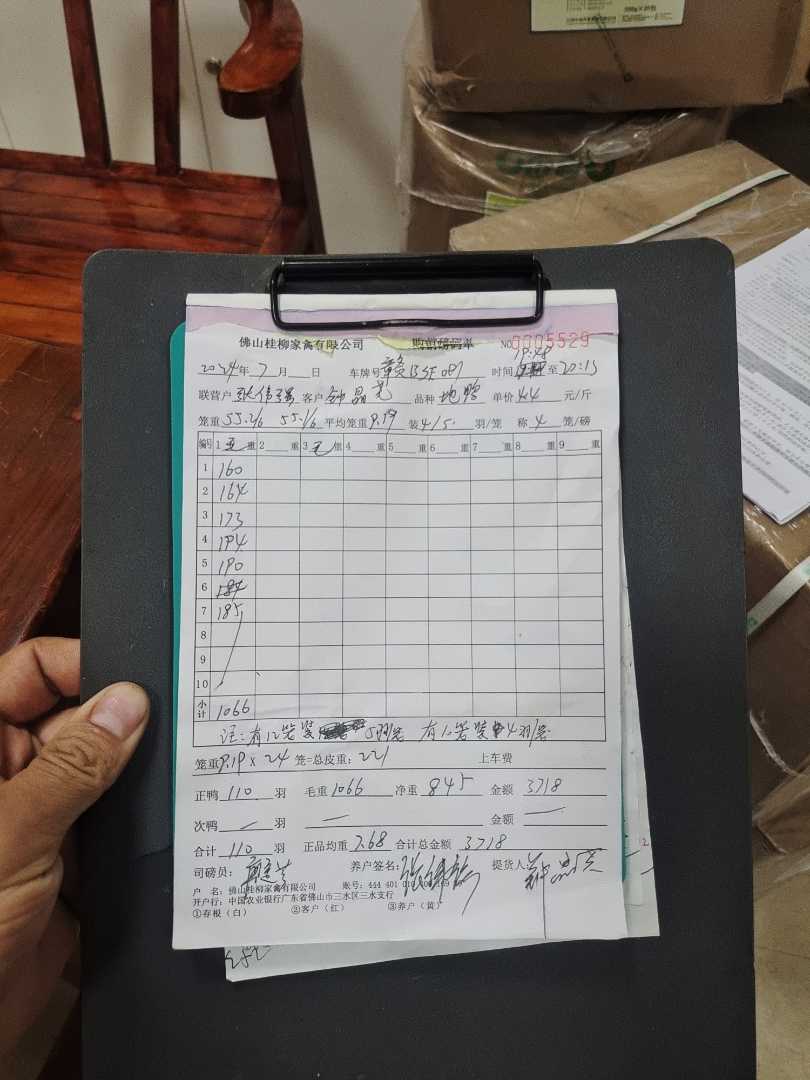 佛山桂柳家禽有限公司 NO 0005529
19:48
2024年7月 日 车牌号 时间 至20:15
联营户 张伟强 客户 钟晶 品种 地鸭 单价 4.4 元/斤
笼重 55.2/6 55.1/6 平均笼重 9.19 装 4/5 羽/笼 称 4 笼/磅
编号 1 毛 重 2 重 3 毛 重 4 重 5 重 6 重 7 重 8 重 9 重
1 160
2 164
3 173
4 194
5 190
6
7 185
8
9
10
小计 1066
注:有12笼装 5羽/笼 有12笼装 4羽/笼
笼重 9.19 x 24 笼=总皮重: 221 上车费
正鸭 110 羽 毛重 1066 净重 845 金额 3718
次鸭 — 羽 — 金额 —
合计 110 羽 正品均重 7.68 合计总金额 3718
司磅员: 养户签名: 提货人
户 名: 佛山桂柳家禽有限公司 账号: 444 601 010
开户行: 中国农业银行广东省佛山市三水区三水支行
①存根(白) ②客户(红) ③养户(黄)